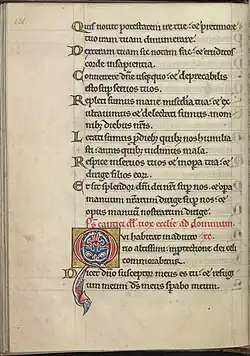 Quis novit potestatem ire tue: et pre timore
tuo iram tuam dinumerare.
Dexteram tuam sic notam fac: et eruditos
corde in sapientia.
Convertere dñe usquequo: et deprecabilis
esto sup servos tuos.
Repleti sumus mane misericdia tua: et ex
ultavimus et delectati sumus in om
nib; diebus nr̃is.
Letati sumus p dieb; quib; nos humilia
sti: annis quib; vidimus mala.
Respice in servos tuos et in opa tua: et
dirige filios eor.
Et sit splendor dñi dei nr̃i sup nos: et opa
manuum nr̃arum dirige sup nos: et
opus manuũ nostrarum dirige.
ecclie ad dominum.
Qui habitat in adiuto
rio altissimi: in ptectione dei celi
commorabitur.
Dicet dño susceptor meus es tu: et refugi
um meum ds̃ meus sperabo in eum.